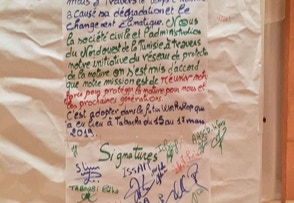 mais à travers le temps l'homme
a causé sa dégradation et le
changement climatique. Nous
la société civile et l'administration
du Nord ouest de la Tunisie à travers
notre initiative du réseau de protection
de la nature on s'est mis d'accord
que notre mission est de réunir nos
forces pour protéger la nature pour nous et
les prochaines générations.
C'est adopté dans le futur Workshop qui
a eu lieu à Tabarka du 15 au 17 mars
2019
Signatures